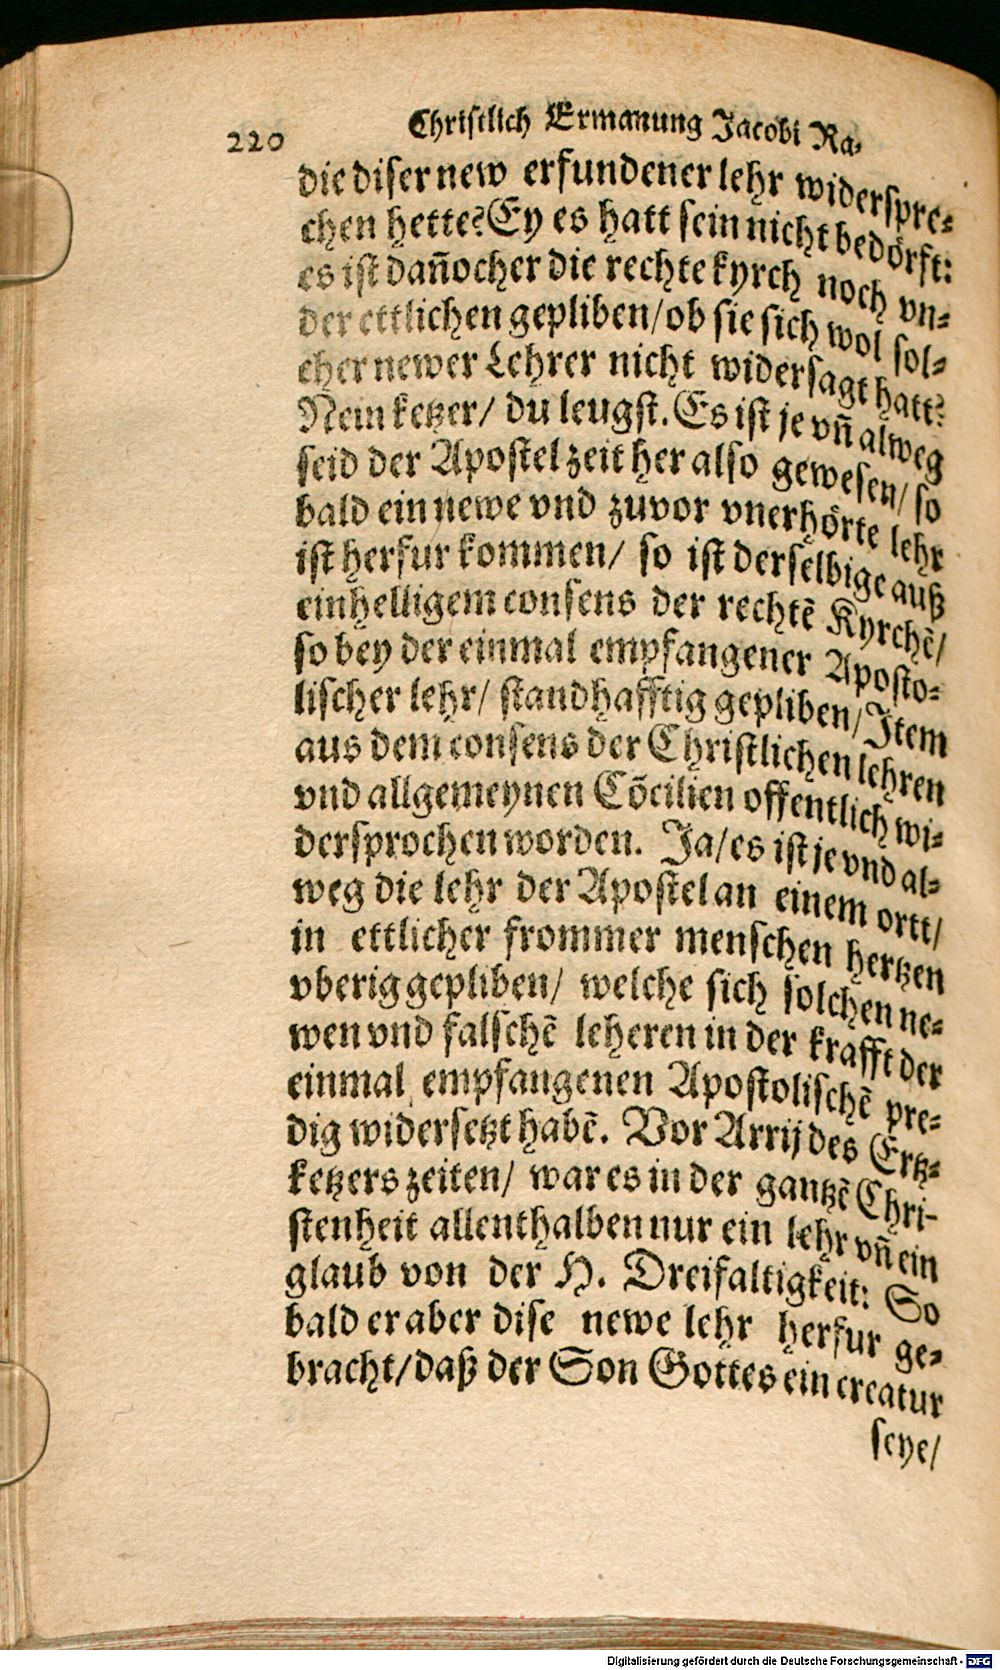 220 Christlich Ermanung Jacobi Ra-
die diser new erfundener lehr widerspre-
chen hette? Ey es hatt sein nicht bedörft:
es ist dañocher die rechte kyrch noch vn-
der ettlichen gepliben/ ob sie sich wol sol-
cher newer Lehrer nicht widersagt hatt?
Nein ketzer/ du leugst. Es ist je vñ alweg
seid der Apostel zeit her also gewesen/ so
bald ein newe vnd zuvor vnerhörte lehr
ist herfur kommen/ so ist derselbige auß
einhelligem consens der rechtẽ Kyrchẽ/
so bey der einmal empfangener Aposto-
lischer lehr/ standhafftig gepliben/ Item
aus dem consens der Christlichen lehren
vnd allgemeynen Cõcilien offentlich wi-
dersprochen worden. Ja/ es ist je vnd al-
weg die lehr der Apostel an einem ortt/
in ettlicher frommer menschen hertzen
vberig gepliben/ welche sich solchen ne-
wen vnd falschẽ leheren in der krafft der
einmal empfangenen Apostolischẽ pre-
dig widersetzt habẽ. Vor Arrij des Ertz-
ketzers zeiten/ war es in der gantzẽ Chri-
stenheit allenthalben nur ein lehr vñ ein
glaub von der H. Dreifaltigkeit: So
bald er aber dise newe lehr herfur ge-
bracht/ daß der Son Gottes ein creatur
seye/
Digitalisierung gefördert durch die Deutsche Forschungsgemeinschaft - DFG